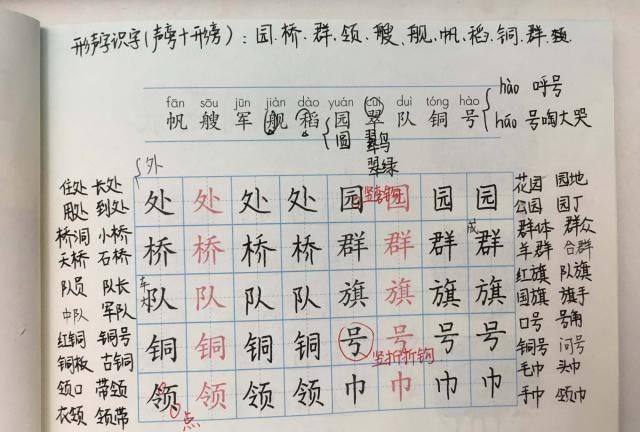 形声字识字(声旁+形旁):园.桥.群.领.艘.舰.帆.稻.铜.群.领.
hào 呼号
fān sōu jūn jiàn dào yuán cuì duì tóng hào
帆 艘 军 舰 稻 园 翠 队 铜 号
háo 号啕大哭
圆 翠鸟
翠绿
外
住处 长处 处 处 处 处 园 竖弯钩 园 园 园 花园 园地
用处 到处 公园 园丁
桥洞 小桥 桥 桥 桥 桥 群 群 群 群 群体 群众
天桥 石桥 羊群 合群
队员 队长 队 队 队 队 旗 旗 旗 旗 红旗 队旗
中队 军队 国旗 旗手
红铜 铜号 铜 铜 铜 铜 号 号 号 号 口号 号角
铜板 古铜 竖折折钩 铜号 问号
领口 带领 领 领 领 领 巾 巾 巾 巾 毛巾 头巾
衣领 领带 点 手巾 领巾